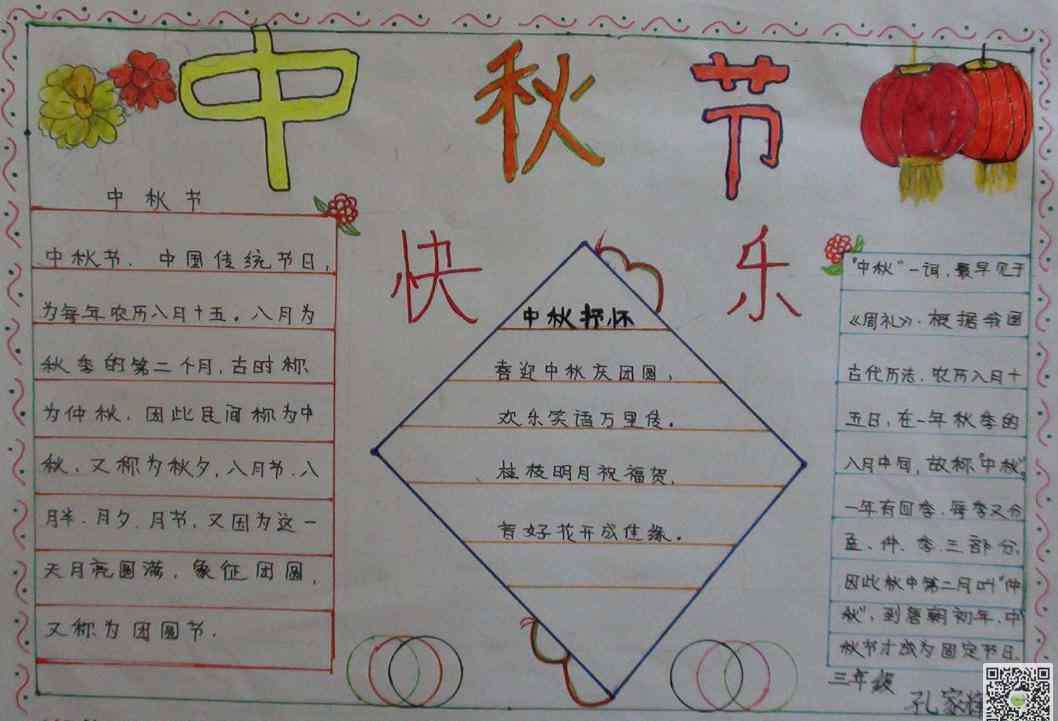 中秋节
快乐
中秋节
中秋节、中国传统节日，
为每年农历八月十五。八月为
秋季的第二个月，古时称
为仲秋，因此民间称为中
秋，又称为秋夕、八月节、八
月半、月夕、月节，又因为这一
天月亮圆满，象征团圆，
又称为团圆节.
中秋抒怀
喜迎中秋庆团圆，
欢乐笑语万里传。
桂枝明月祝福贺，
育好花开成佳缘。
“中秋”一词，最早见于
《周礼》. 根据我国
古代历法，农历八月十
五日，在一年秋季的
八月中旬，故称“中秋”。
一年有四季，每季又分
孟、仲、季、三部分，
因此秋中第二月叫“仲
秋”，到唐朝初年，中
秋节才成为固定节日。
三年级
孔家